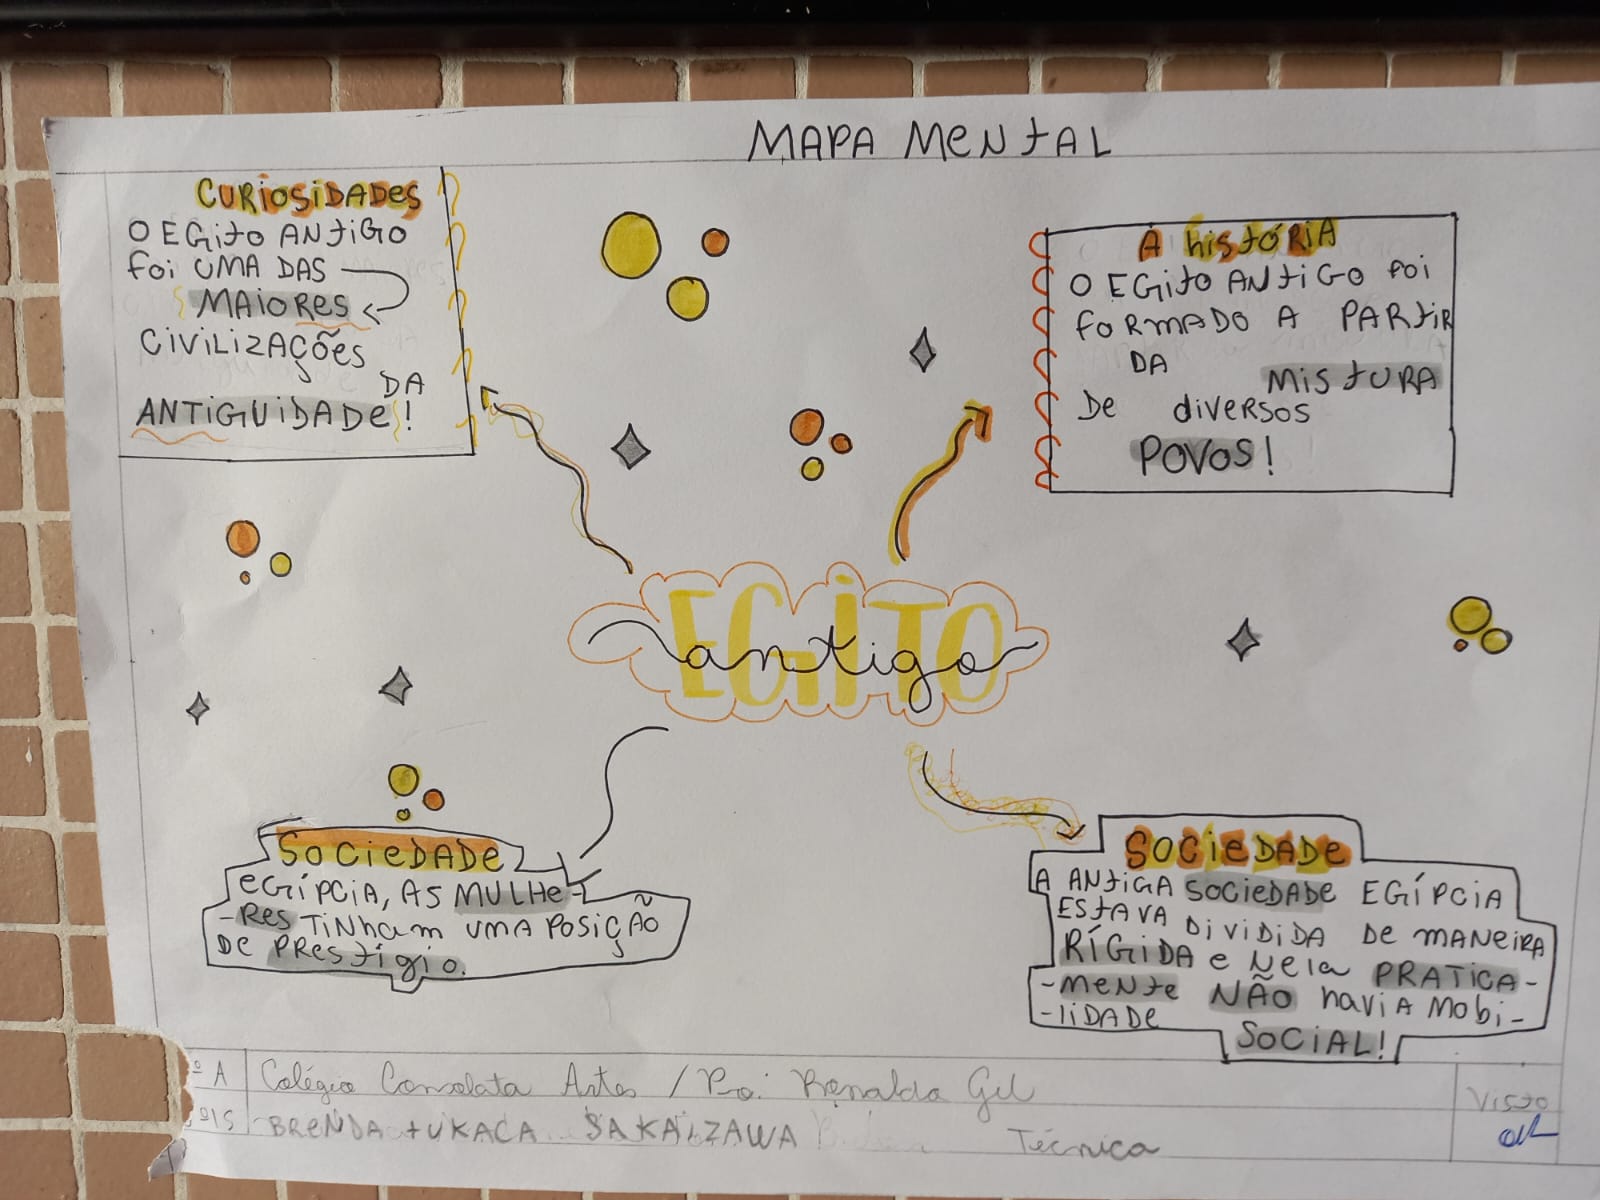 MAPA MENTAL
CURIOSIDADES
O EGITO ANTIGO
FOI UMA DAS
MAIORES
CIVILIZAÇÕES
DA
ANTIGUIDADE!
A HISTÓRIA
O EGITO ANTIGO FOI
FORMADO A PARTIR
DA
MISTURA
DE DIVERSOS
POVOS!
EGITO
antigo
SOCIEDADE
EGÍPCIA, AS MULHE-
-RES TINHAM UMA POSIÇÃO
DE PRESTÍGIO.
SOCIEDADE
A ANTIGA SOCIEDADE EGÍPCIA
ESTAVA DIVIDIDA DE MANEIRA
RÍGIDA E NELA PRATICA-
-MENTE NÃO HAVIA MOBI-
-LIDADE
SOCIAL!
º A Colégio Consolata Artes / Ronaldo Gil
º15 BRENDA SAKAIZAWA
Técnica
Visto